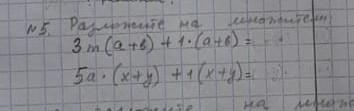 №5. Разложите на множители:
3m(a+b)+1·(a+b)=
5a·(x+y)+1(x+y)=
на множ